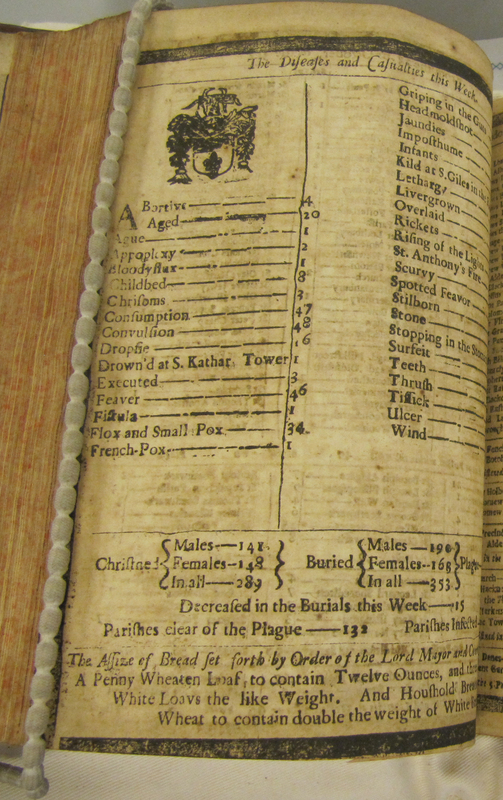 The Diſeaſes and Caſualties this Week.
ABortive 4
Aged 20
Ague 1
Appoplexy 2
Bloodyflux 1
Childbed 8
Chriſoms 3
Conſumption 47
Convulſion 48
Dropſie 16
Drown'd at S. Kathar. Tower 1
Executed 3
Feaver 46
Fiſtula 1
Flox and Small Pox 34
French-Pox 1
Griping in the Guts
Headmoldſhot
Jaundies
Impoſthume
Infants
Kild at S. Giles in the
Lethargy
Livergrown
Overlaid
Rickets
Riſing of the Lights
St. Anthony's Fire
Scurvy
Spotted Feavor
Stilborn
Stone
Stopping in the
Surfeit
Teeth
Thruſh
Tiſſick
Ulcer
Wind
Chriſtned Males 141 Females 148 In all 289
Buried Males 190 Females 163 In all 353
Plague
Decreaſed in the Burials this Week 15
Pariſhes clear of the Plague 132 Pariſhes Infected
The Aſſize of Bread ſet forth by Order of the Lord Mayor and
A Penny Wheaten Loaf, to contain Twelve Ounces, and
White Loavs the like Weight. And Houſhold
Wheat to contain double the weight of White